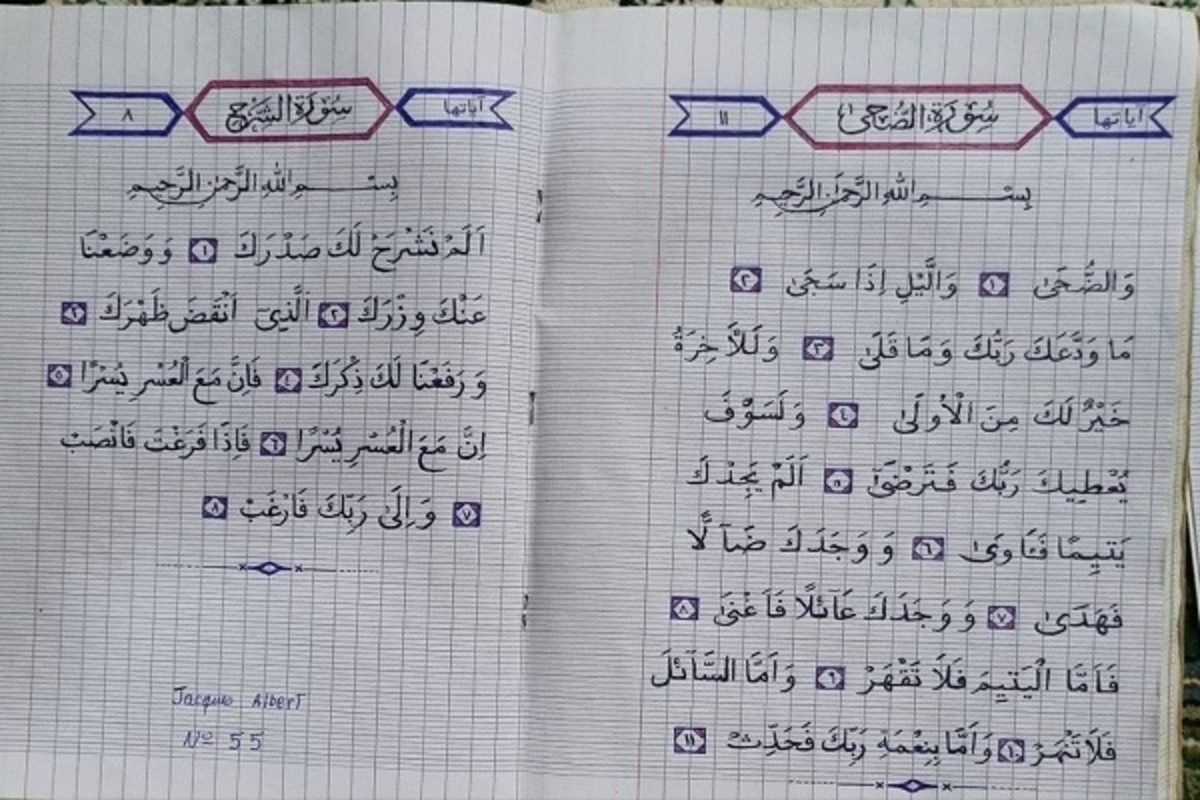 آياتها سُوْرَةُ الضُّحَىٰ ١١
بِسْمِ اللهِ الرَّحْمَنِ الرَّحِيمِ
وَالضُّحَىٰ ١ وَالَّيْلِ اِذَا سَجَىٰ ٢
مَا وَدَّعَكَ رَبُّكَ وَمَا قَلَىٰ ٣ وَلَلْاَخِرَةُ
خَيْرٌ لَكَ مِنَ الْاُولَىٰ ٤ وَلَسَوْفَ
يُعْطِيكَ رَبُّكَ فَتَرْضَىٰٓ ٥ اَلَمْ يَجِدْكَ
يَتِيمًا فَـَٔاوَىٰ ٦ وَوَجَدَكَ ضَآلًّا
فَهَدَىٰ ٧ وَوَجَدَكَ عَآئلًا فَاَغْنَىٰ ٨
فَاَمَّا الْيَتِيمَ فَلَا تَقْهَرْ ٩ وَاَمَّا السَّآئلَ
فَلَا تَنْهَرْ ١٠ وَاَمَّا بِنِعْمَةِ رَبِّكَ فَحَدِّثْ ١١
آياتها سُوْرَةُ الشَّرْحِ ٨
بِسْمِ اللهِ الرَّحْمَنِ الرَّحِيمِ
اَلَمْ نَشْرَحْ لَكَ صَدْرَكَ ١ وَوَضَعْنَا
عَنْكَ وِزْرَكَ ٢ اَلَّذِىٓ اَنْقَضَ ظَهْرَكَ ٣
وَرَفَعْنَا لَكَ ذِكْرَكَ ٤ فَاِنَّ مَعَ الْعُسْرِ يُسْرًا ٥
اِنَّ مَعَ الْعُسْرِ يُسْرًا ٦ فَاِذَا فَرَغْتَ فَانْصَبْ
٧ وَاِلَىٰ رَبِّكَ فَارْغَبْ ٨
Jacques Albert
Nº 55